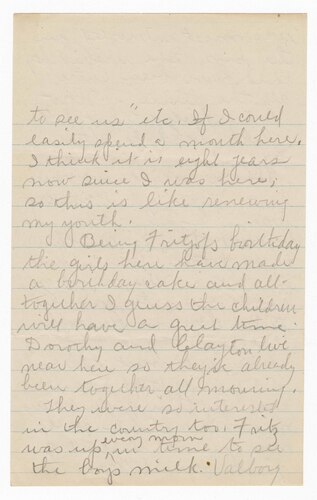 to see us" etc. If I could
easily spend a month here.
I think it is eight years
now since I was here;
so this is like renewing
my youth.
Being Fritjofs birthday
the girls here have made
a birthday cake and all-
together I guess the children
will have a great time.
Dorothy and Clayton live
near here so they've already
been together all morning.
They were so interested
in the country too. Fritz
every morn
was up, in time to see
the boys milk. Valborg